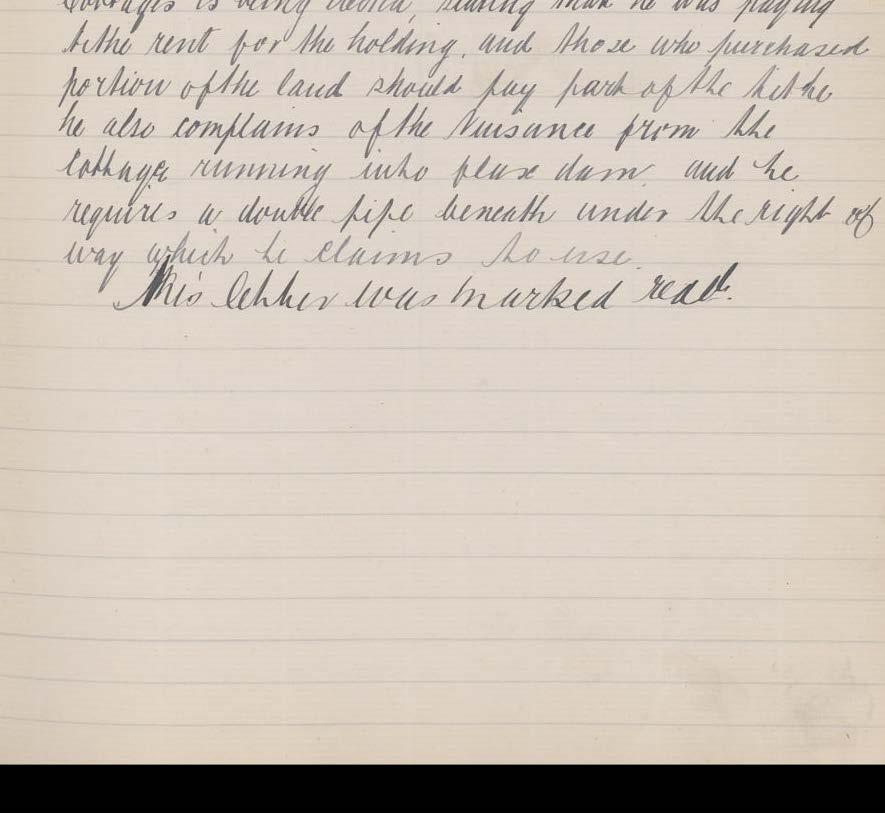 Cottages is being , stating that he was paying
tithe rent for the holding, and those who purchased
portion of the land should pay part of the tithe
he also complains of the Nuisance from the
Cottages running into flax dam, and he
requires a double pipe beneath under the right of
way which he claims to use.
This letter was marked read.